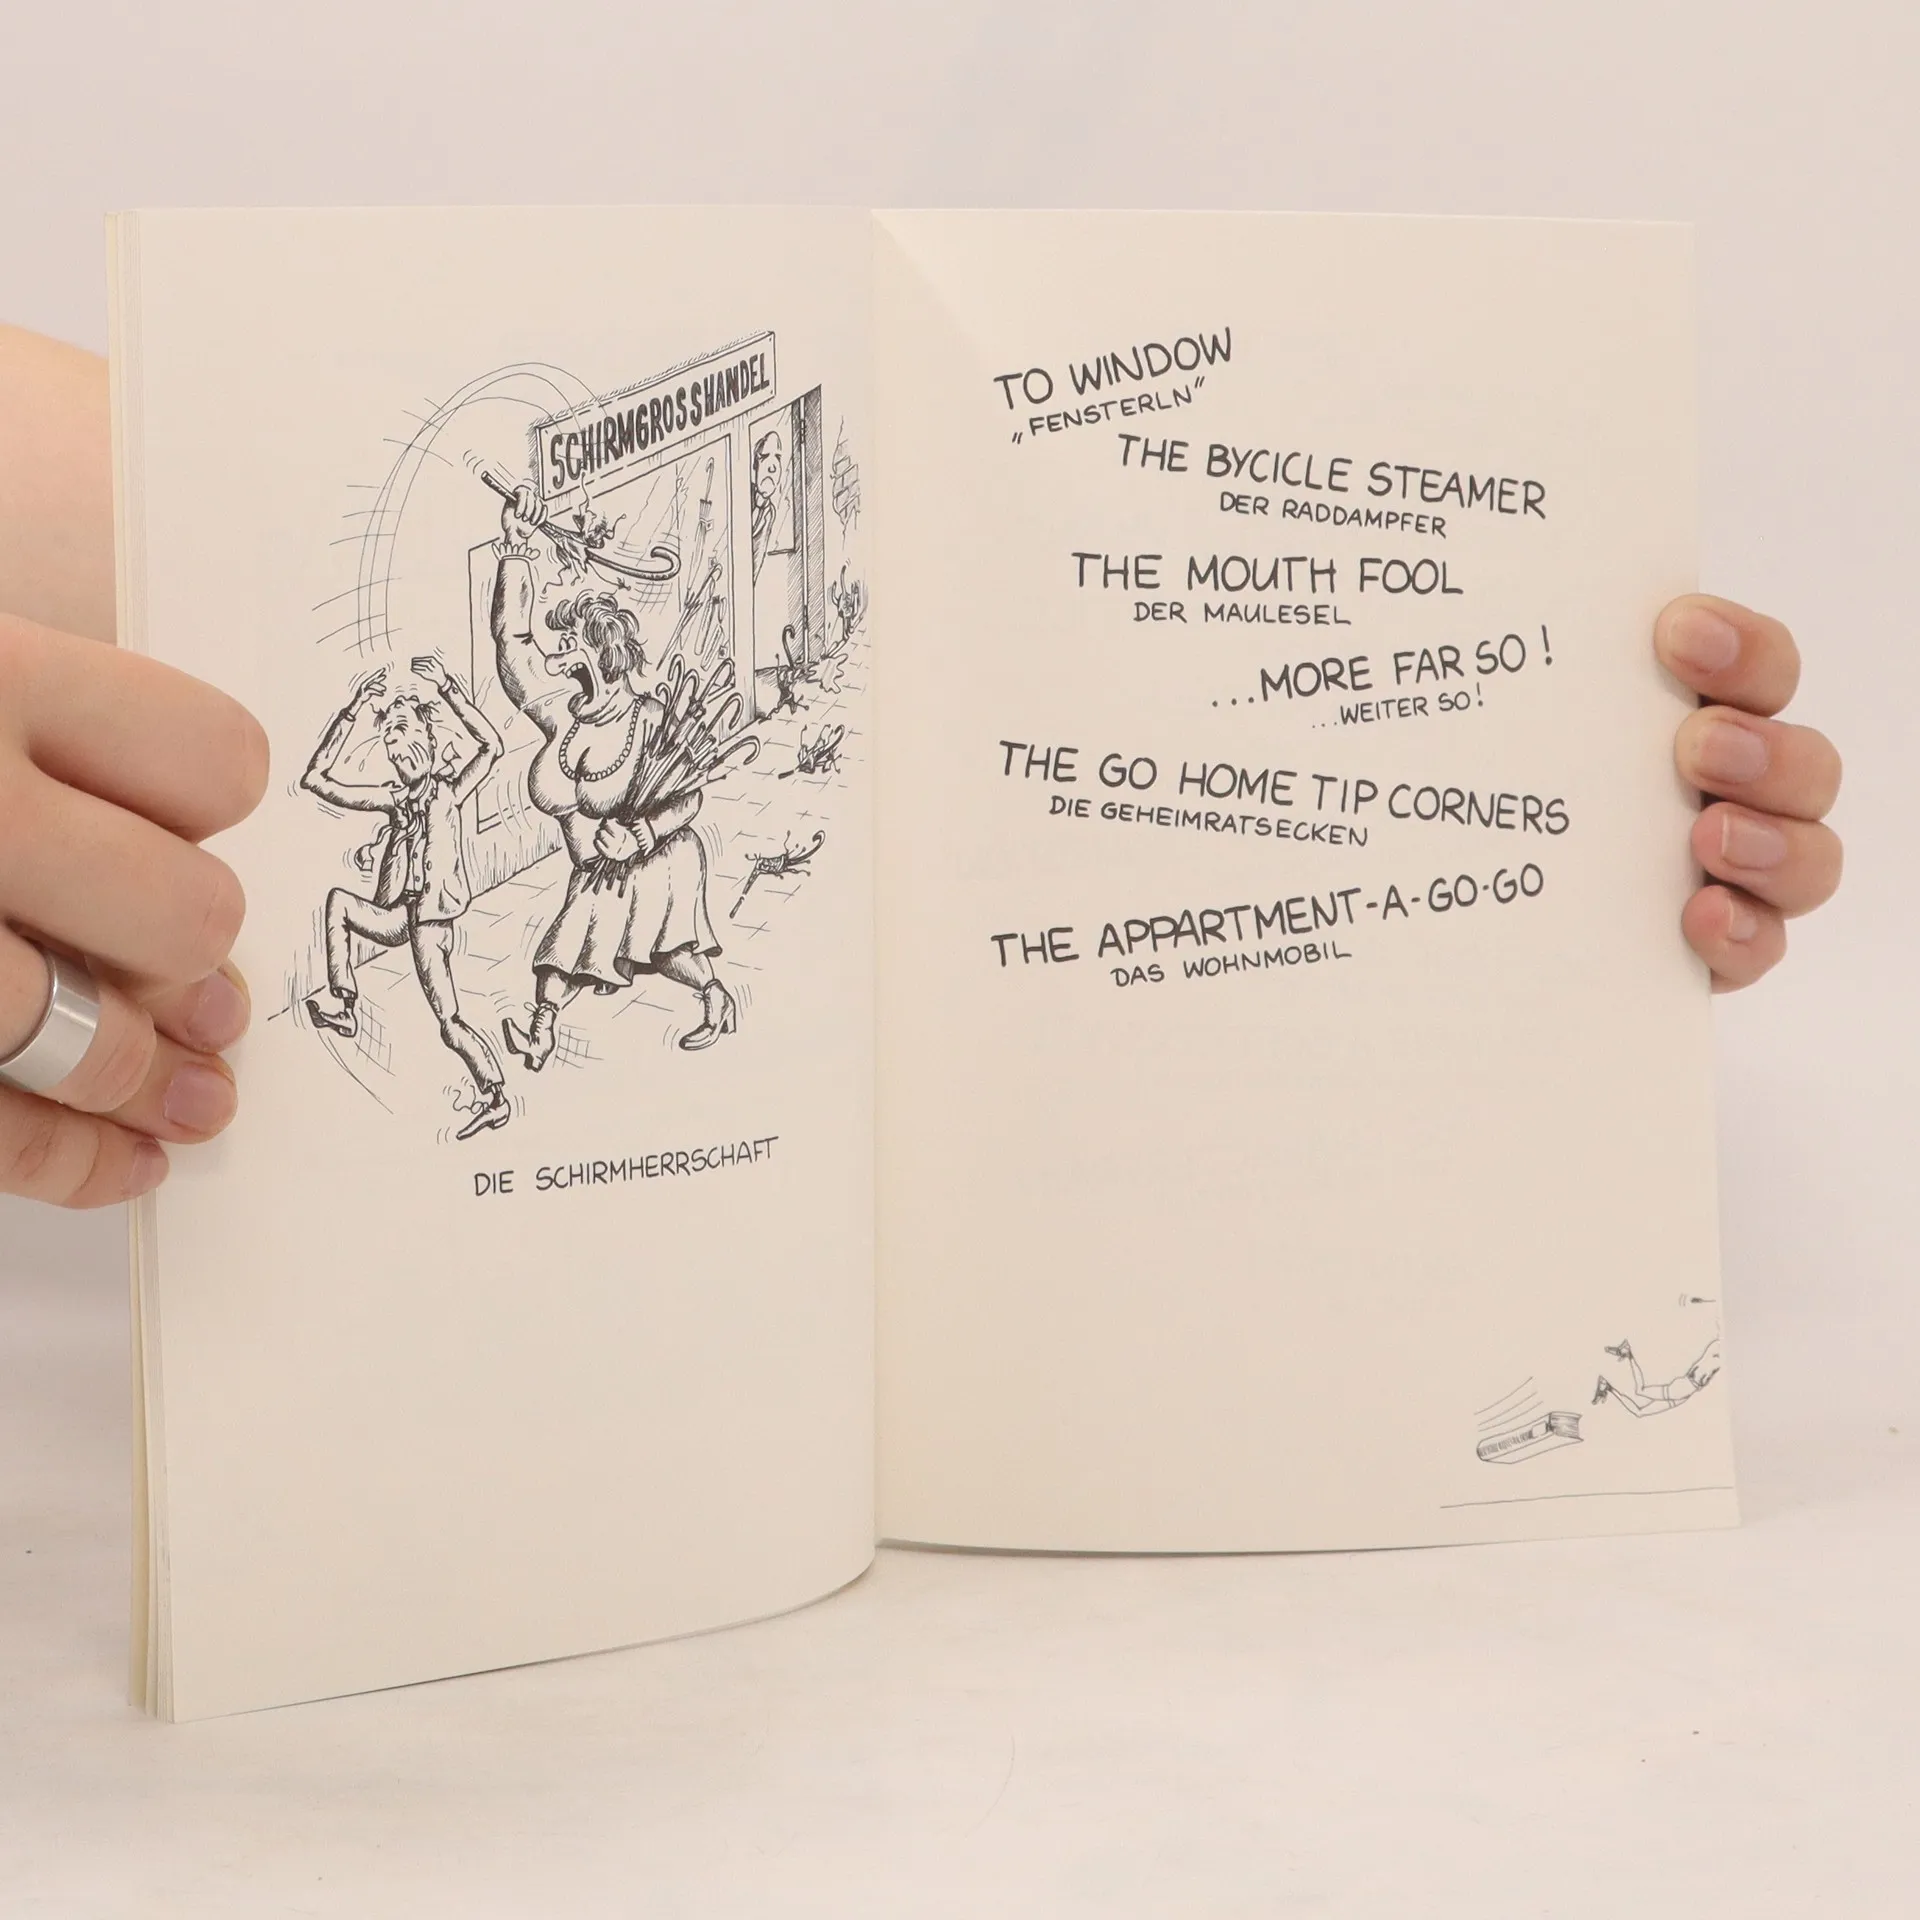 SCHIRMGROSSHANDEL
DIE SCHIRMHERRSCHAFT
TO WINDOW
„FENSTERLN“
THE BYCICLE STEAMER
DER RADDAMPFER
THE MOUTH FOOL
DER MAULESEL
...MORE FAR SO!
...WEITER SO!
THE GO HOME TIP CORNERS
DIE GEHEIMRATSECKEN
THE APPARTMENT-A-GO-GO
DAS WOHNMOBIL